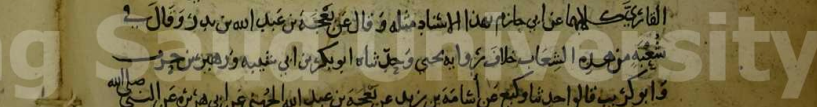 القاري كلاهما عن ابي حازم بهذا الاسناد مثله وقال عن بعجة بن عبد الله بن بدر وقال في
شعبة من هذه الشعاب خلاف رواية يحيى وحدثناه ابو بكر بن ابي شيبة وزهير بن حرب
وابو كريب قالوا حدثنا وكيع عن أسامة بن زيد عن بعجة بن عبد الله الجهني عن ابي هريرة عن النبي صلى الله